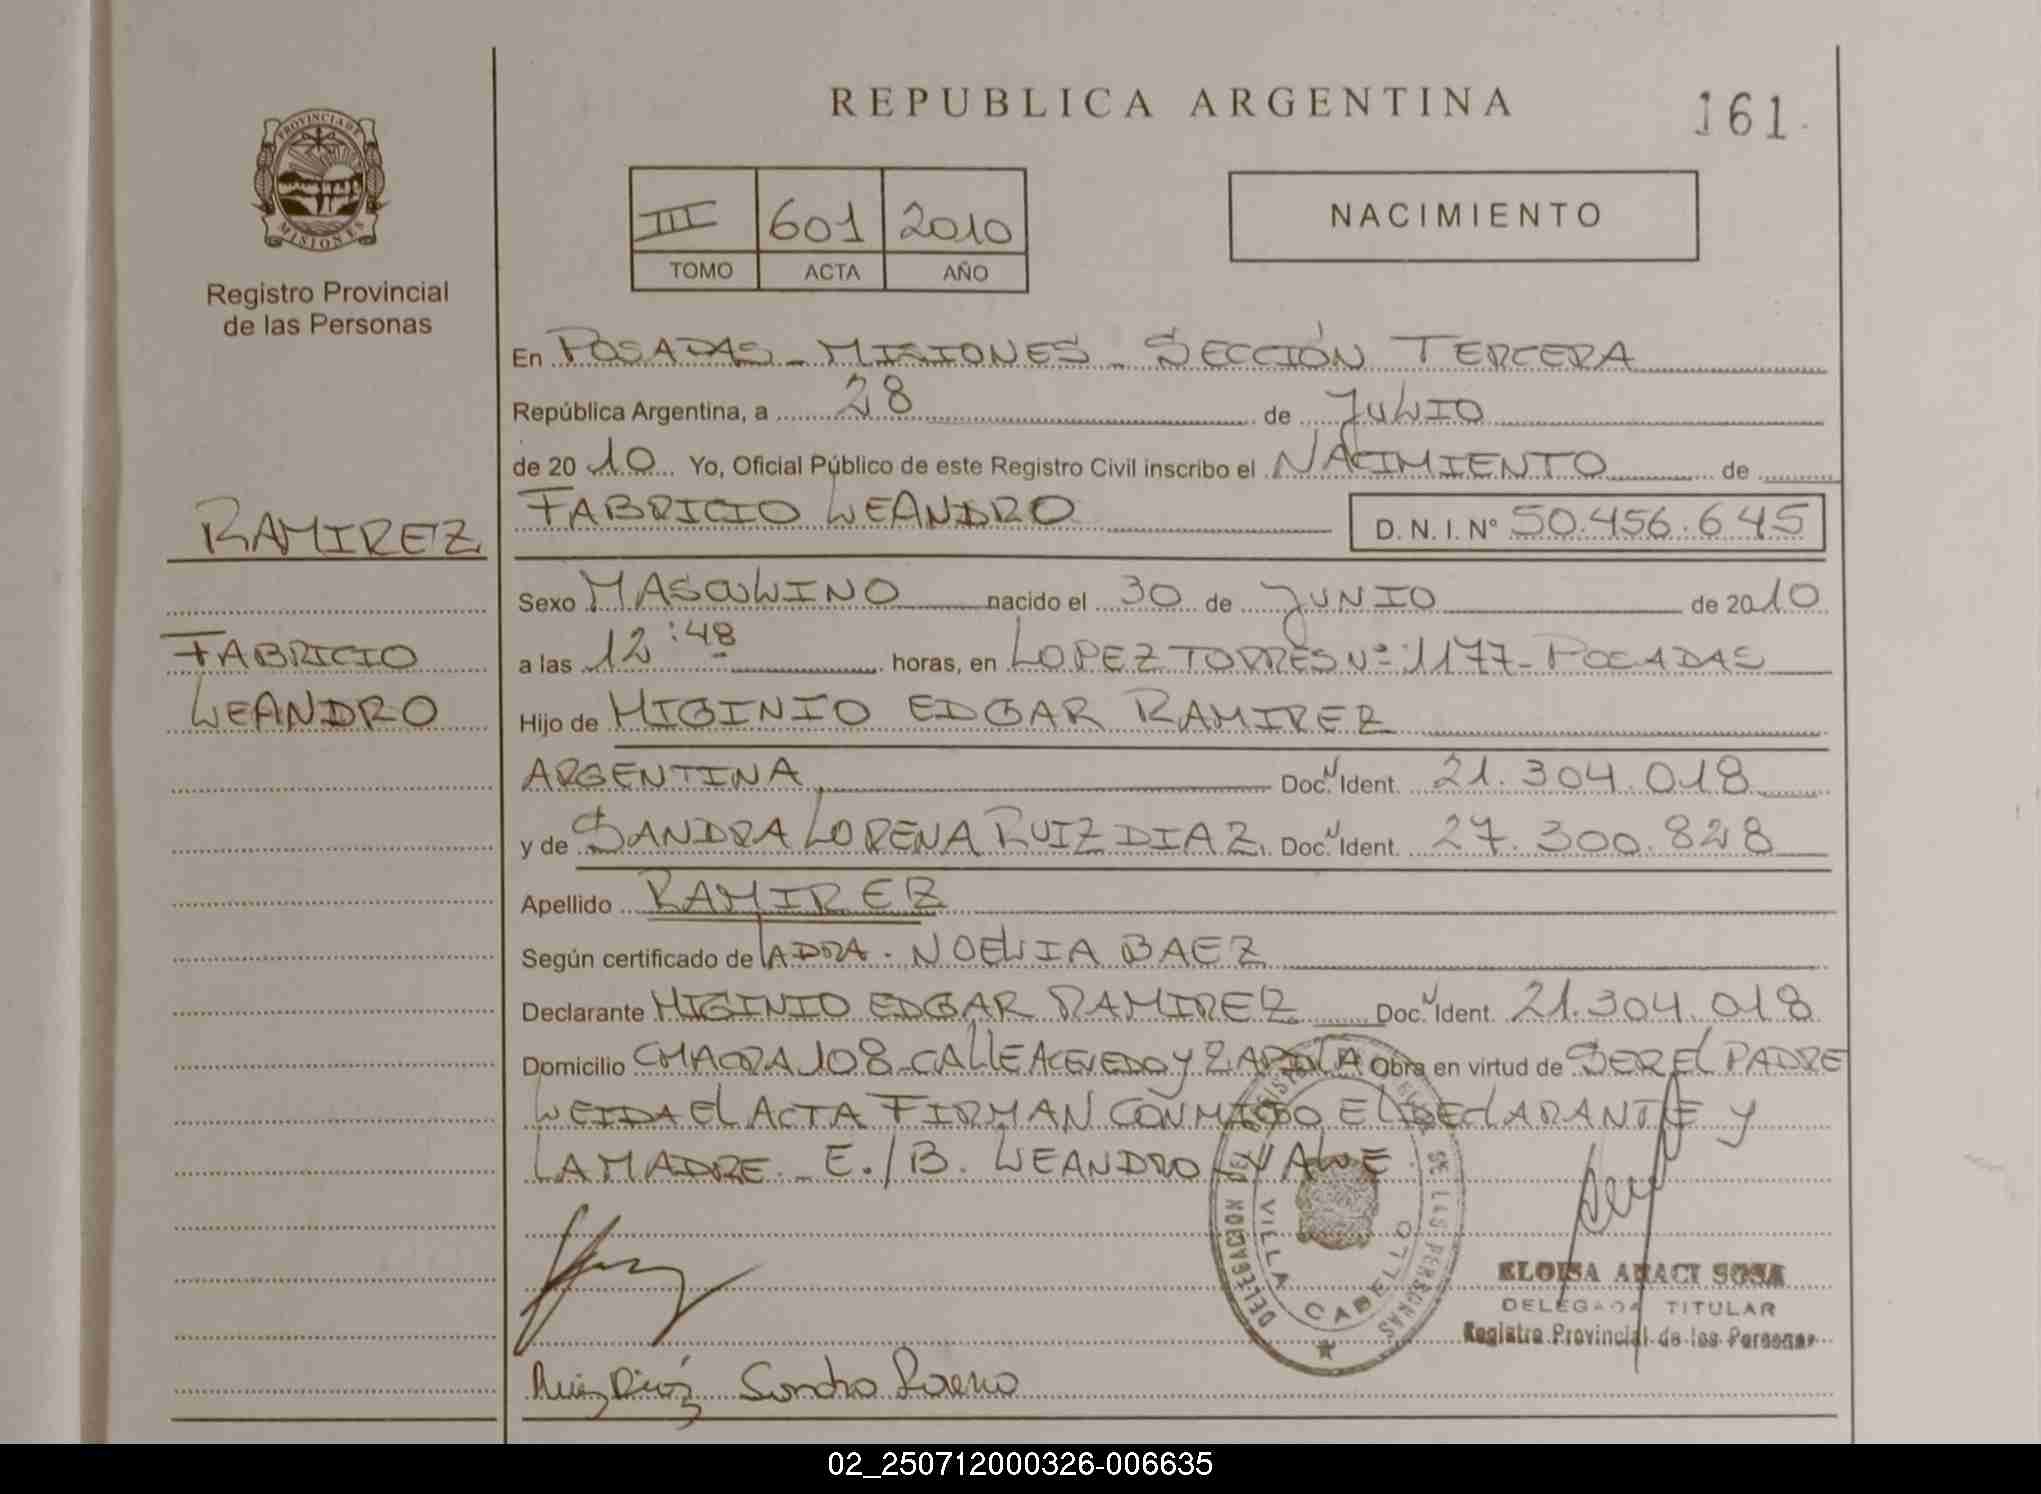 REPUBLICA ARGENTINA
161
PROVINCIA DE
MISIONES
Registro Provincial
de las Personas
III 601 2010
TOMO ACTA AÑO
NACIMIENTO
En POSADAS - MISIONES - SECCIÓN TERCERA
República Argentina, a 28 de JULIO
de 2010 Yo, Oficial Público de este Registro Civil inscribo el NACIMIENTO de
FABRICIO LEANDRO D. N. I. Nº 50.456.645
RAMIREZ
FABRICIO
LEANDRO
Sexo MASCULINO nacido el 30 de JUNIO de 2010
a las 12:48 horas, en LOPEZ TORRES Nº 1177 - POSADAS
Hijo de HIGINIO EDGAR RAMIREZ
ARGENTINA Doc. N Ident. 21.304.018
y de SANDRA LORENA RUIZ DIAZ Doc. N Ident. 27.300.828
Apellido RAMIREZ
Según certificado de LA DRA. NOELIA BAEZ
Declarante HIGINIO EDGAR RAMIREZ Doc. N Ident. 21.304.018
Domicilio CHACRA 108 - CALLE ACEVEDO y ZAPIOLA Obra en virtud de SER EL PADRE
LEIDA EL ACTA FIRMAN CONMIGO EL DECLARANTE y
LA MADRE - E./B. LEANDRO - VALE
DELEGACION DEL REGISTRO DE LAS PERSONAS
VILLA CABELLO
ELOISA ARACI SOSA
DELEGADA TITULAR
Registro Provincial de las Personas
Ruiz Diaz Sandra Lorena
02_250712000326-006635